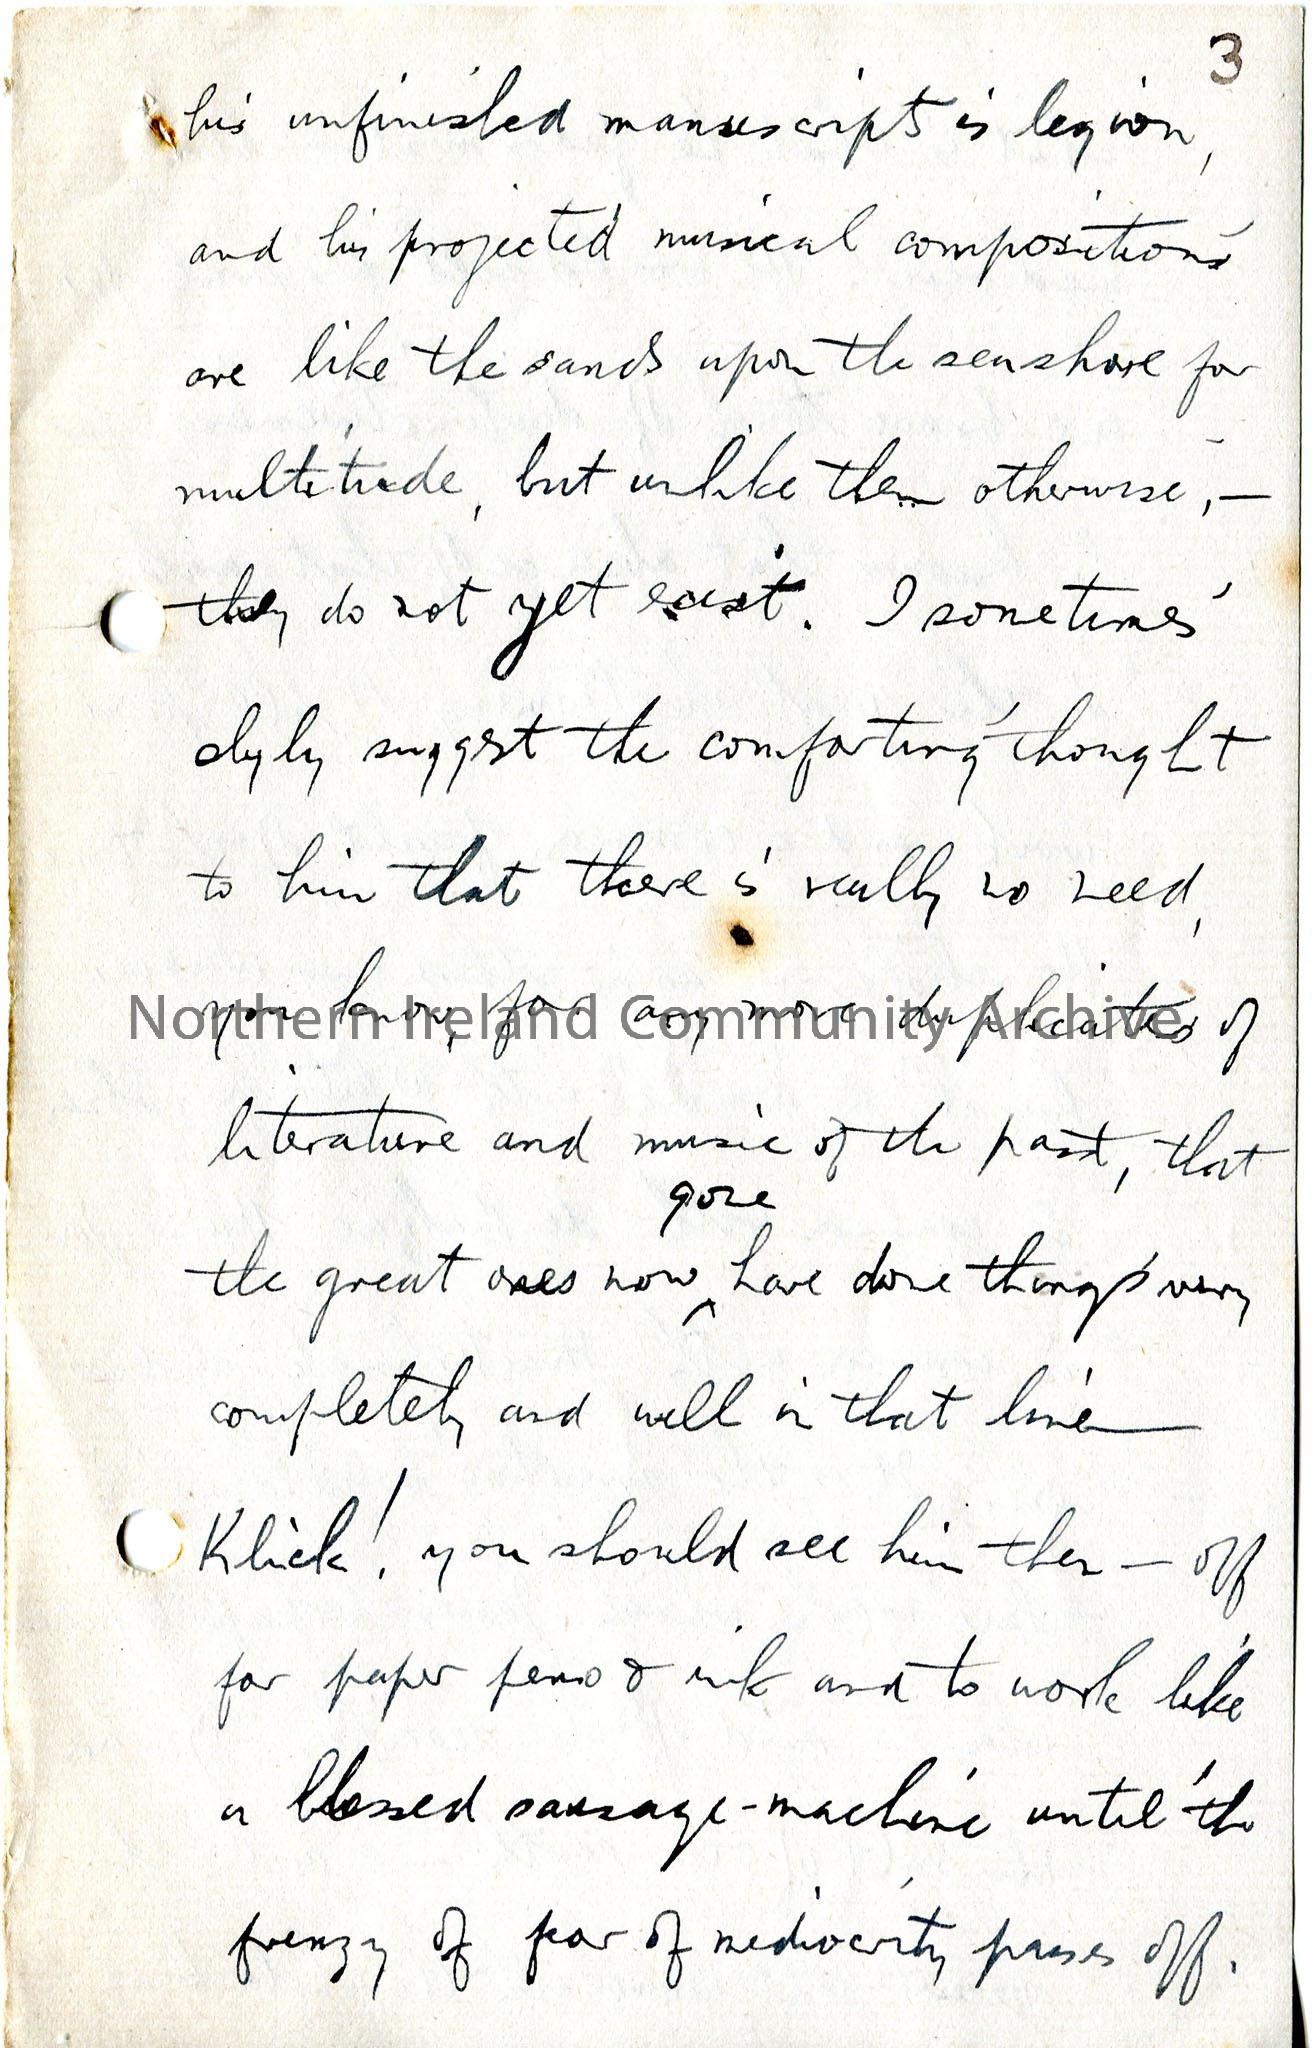 3
his unfinished manuscripts is legion,
and his projected musical compositions
are like the sands upon the seashore for
multitude, but unlike them otherwise, —
they do not yet exist. I sometimes
slyly suggest the comforting thought
to him that there is really no need,
you know, for any more duplicates of
Northern Ireland Community Archive
literature and music of the past, that
gone
the great ones now ^ have done things very
completely and well in that line —
Klick! you should see him then — off
for paper pens & ink and to work like
a blessed sausage-machine until the
frenzy of fear of mediocrity passes off.